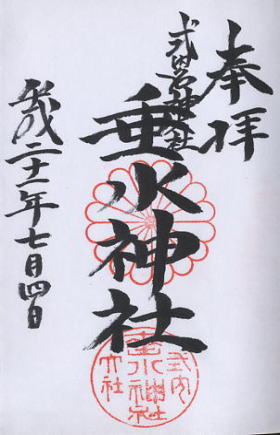 奉拝
式内名神大社
垂水神社
平成二十一年七月四日
式内
垂水神社
大社